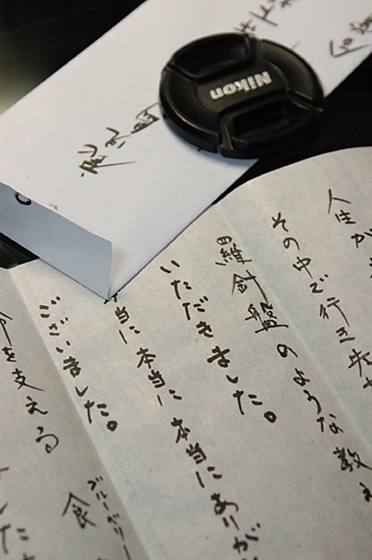 Nikon
人生が
その中で行き先
羅針盤のような教
いただきました。
当に本当に本当にありが
ございました。
ブルーベリー
食
を支える
した